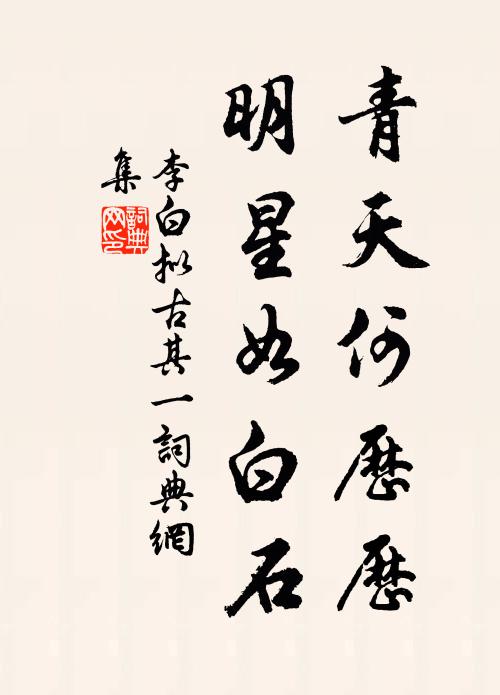 青天何歷歷
明星如白石
李白擬古其一詞典網
集
詞典网印